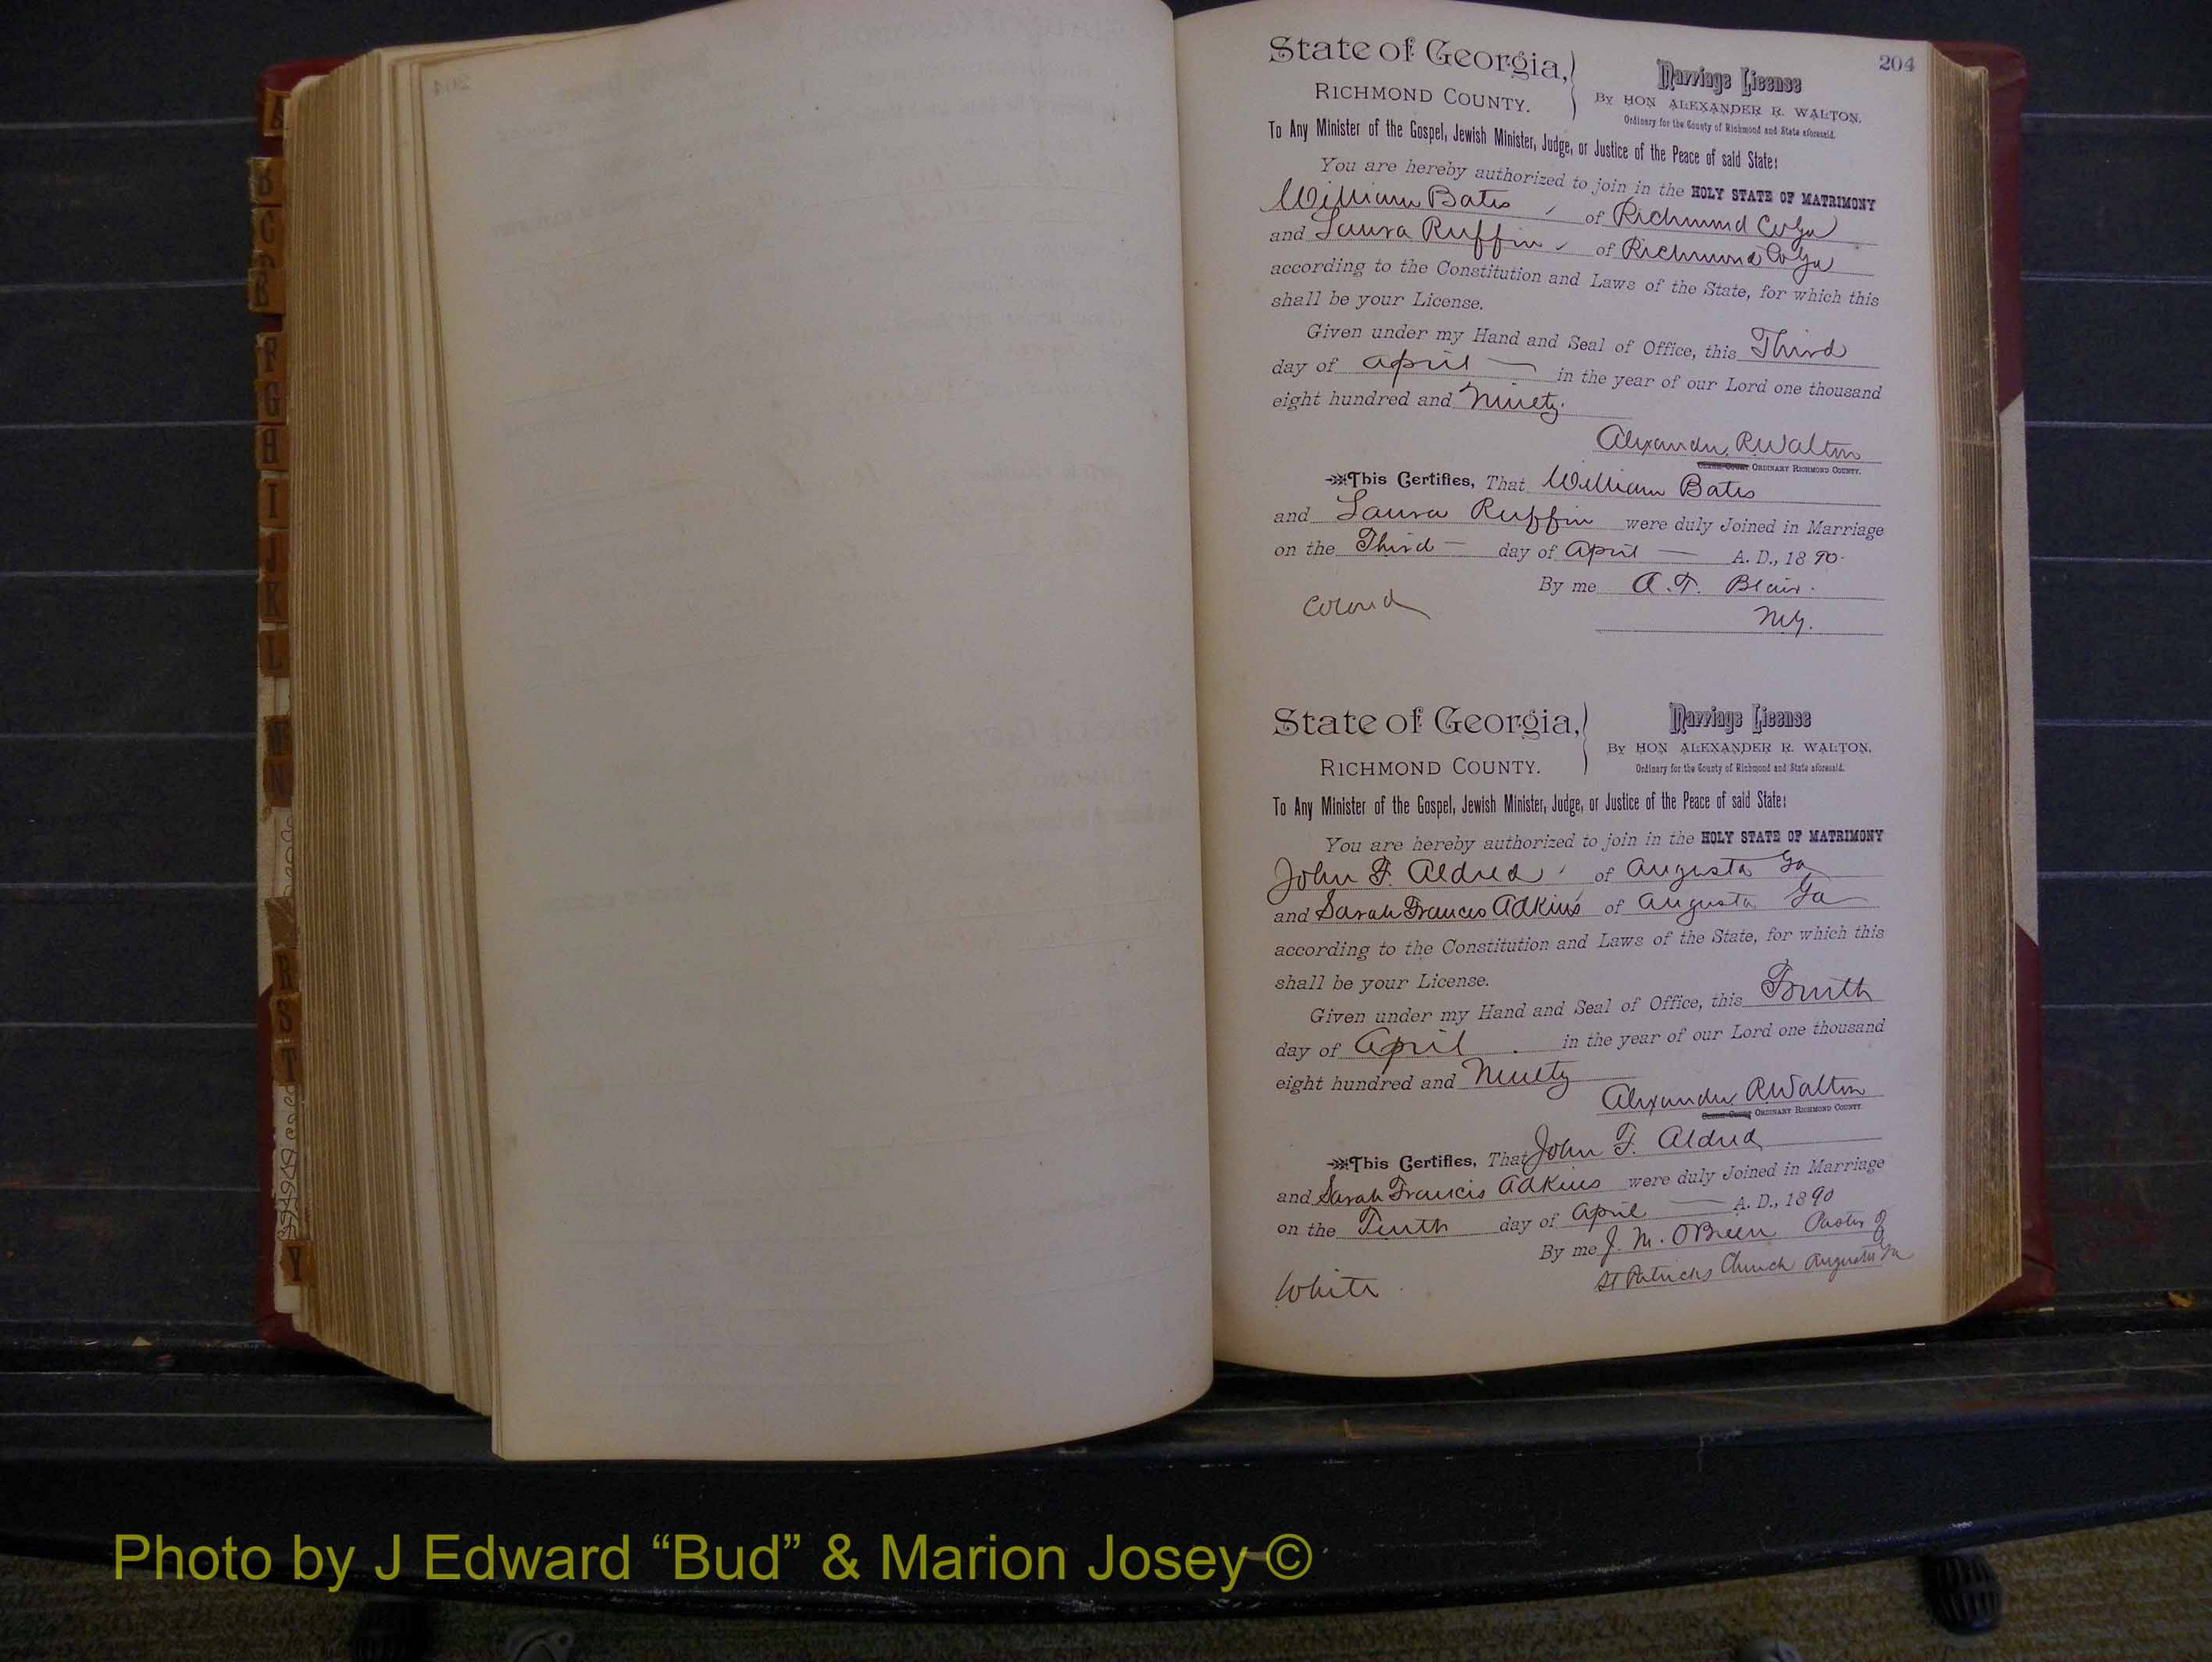 204
State of Georgia,
RICHMOND COUNTY.
Marriage License
By HON ALEXANDER R. WALTON.
Ordinary for the County of Richmond and State aforesaid.
To Any Minister of the Gospel, Jewish Minister, Judge, or Justice of the Peace of said State:
You are hereby authorized to join in the HOLY STATE OF MATRIMONY
William Bates of Richmond Co Ga
and Laura Ruffin of Richmond Co Ga
according to the Constitution and Laws of the State, for which this
shall be your License.
Given under my Hand and Seal of Office, this Third
day of April in the year of our Lord one thousand
eight hundred and Ninety.
Alexander R Walton
ORDINARY RICHMOND COUNTY.
This Certifies, That William Bates
and Laura Ruffin were duly Joined in Marriage
on the Third day of April A. D., 1890.
By me A. T. Blair.
M G.
Colored
State of Georgia,
RICHMOND COUNTY.
Marriage License
By HON ALEXANDER R. WALTON,
Ordinary for the County of Richmond and State aforesaid.
To Any Minister of the Gospel, Jewish Minister, Judge, or Justice of the Peace of said State:
You are hereby authorized to join in the HOLY STATE OF MATRIMONY
John F. Aldred of Augusta Ga
and Sarah Frances Adkins of Augusta Ga
according to the Constitution and Laws of the State, for which this
shall be your License.
Given under my Hand and Seal of Office, this Fourth
day of April in the year of our Lord one thousand
eight hundred and Ninety
Alexander R Walton
ORDINARY RICHMOND COUNTY.
This Certifies, That John F. Aldred
and Sarah Francis Adkins were duly Joined in Marriage
on the Tenth day of April A. D., 1890
By me J. M. OBrien Pastor of
St Patricks Church Augusta Ga
White
B
C
F
G
H
I
J
K
L
M
N
R
S
T
Y
Photo by J Edward “Bud” & Marion Josey ©